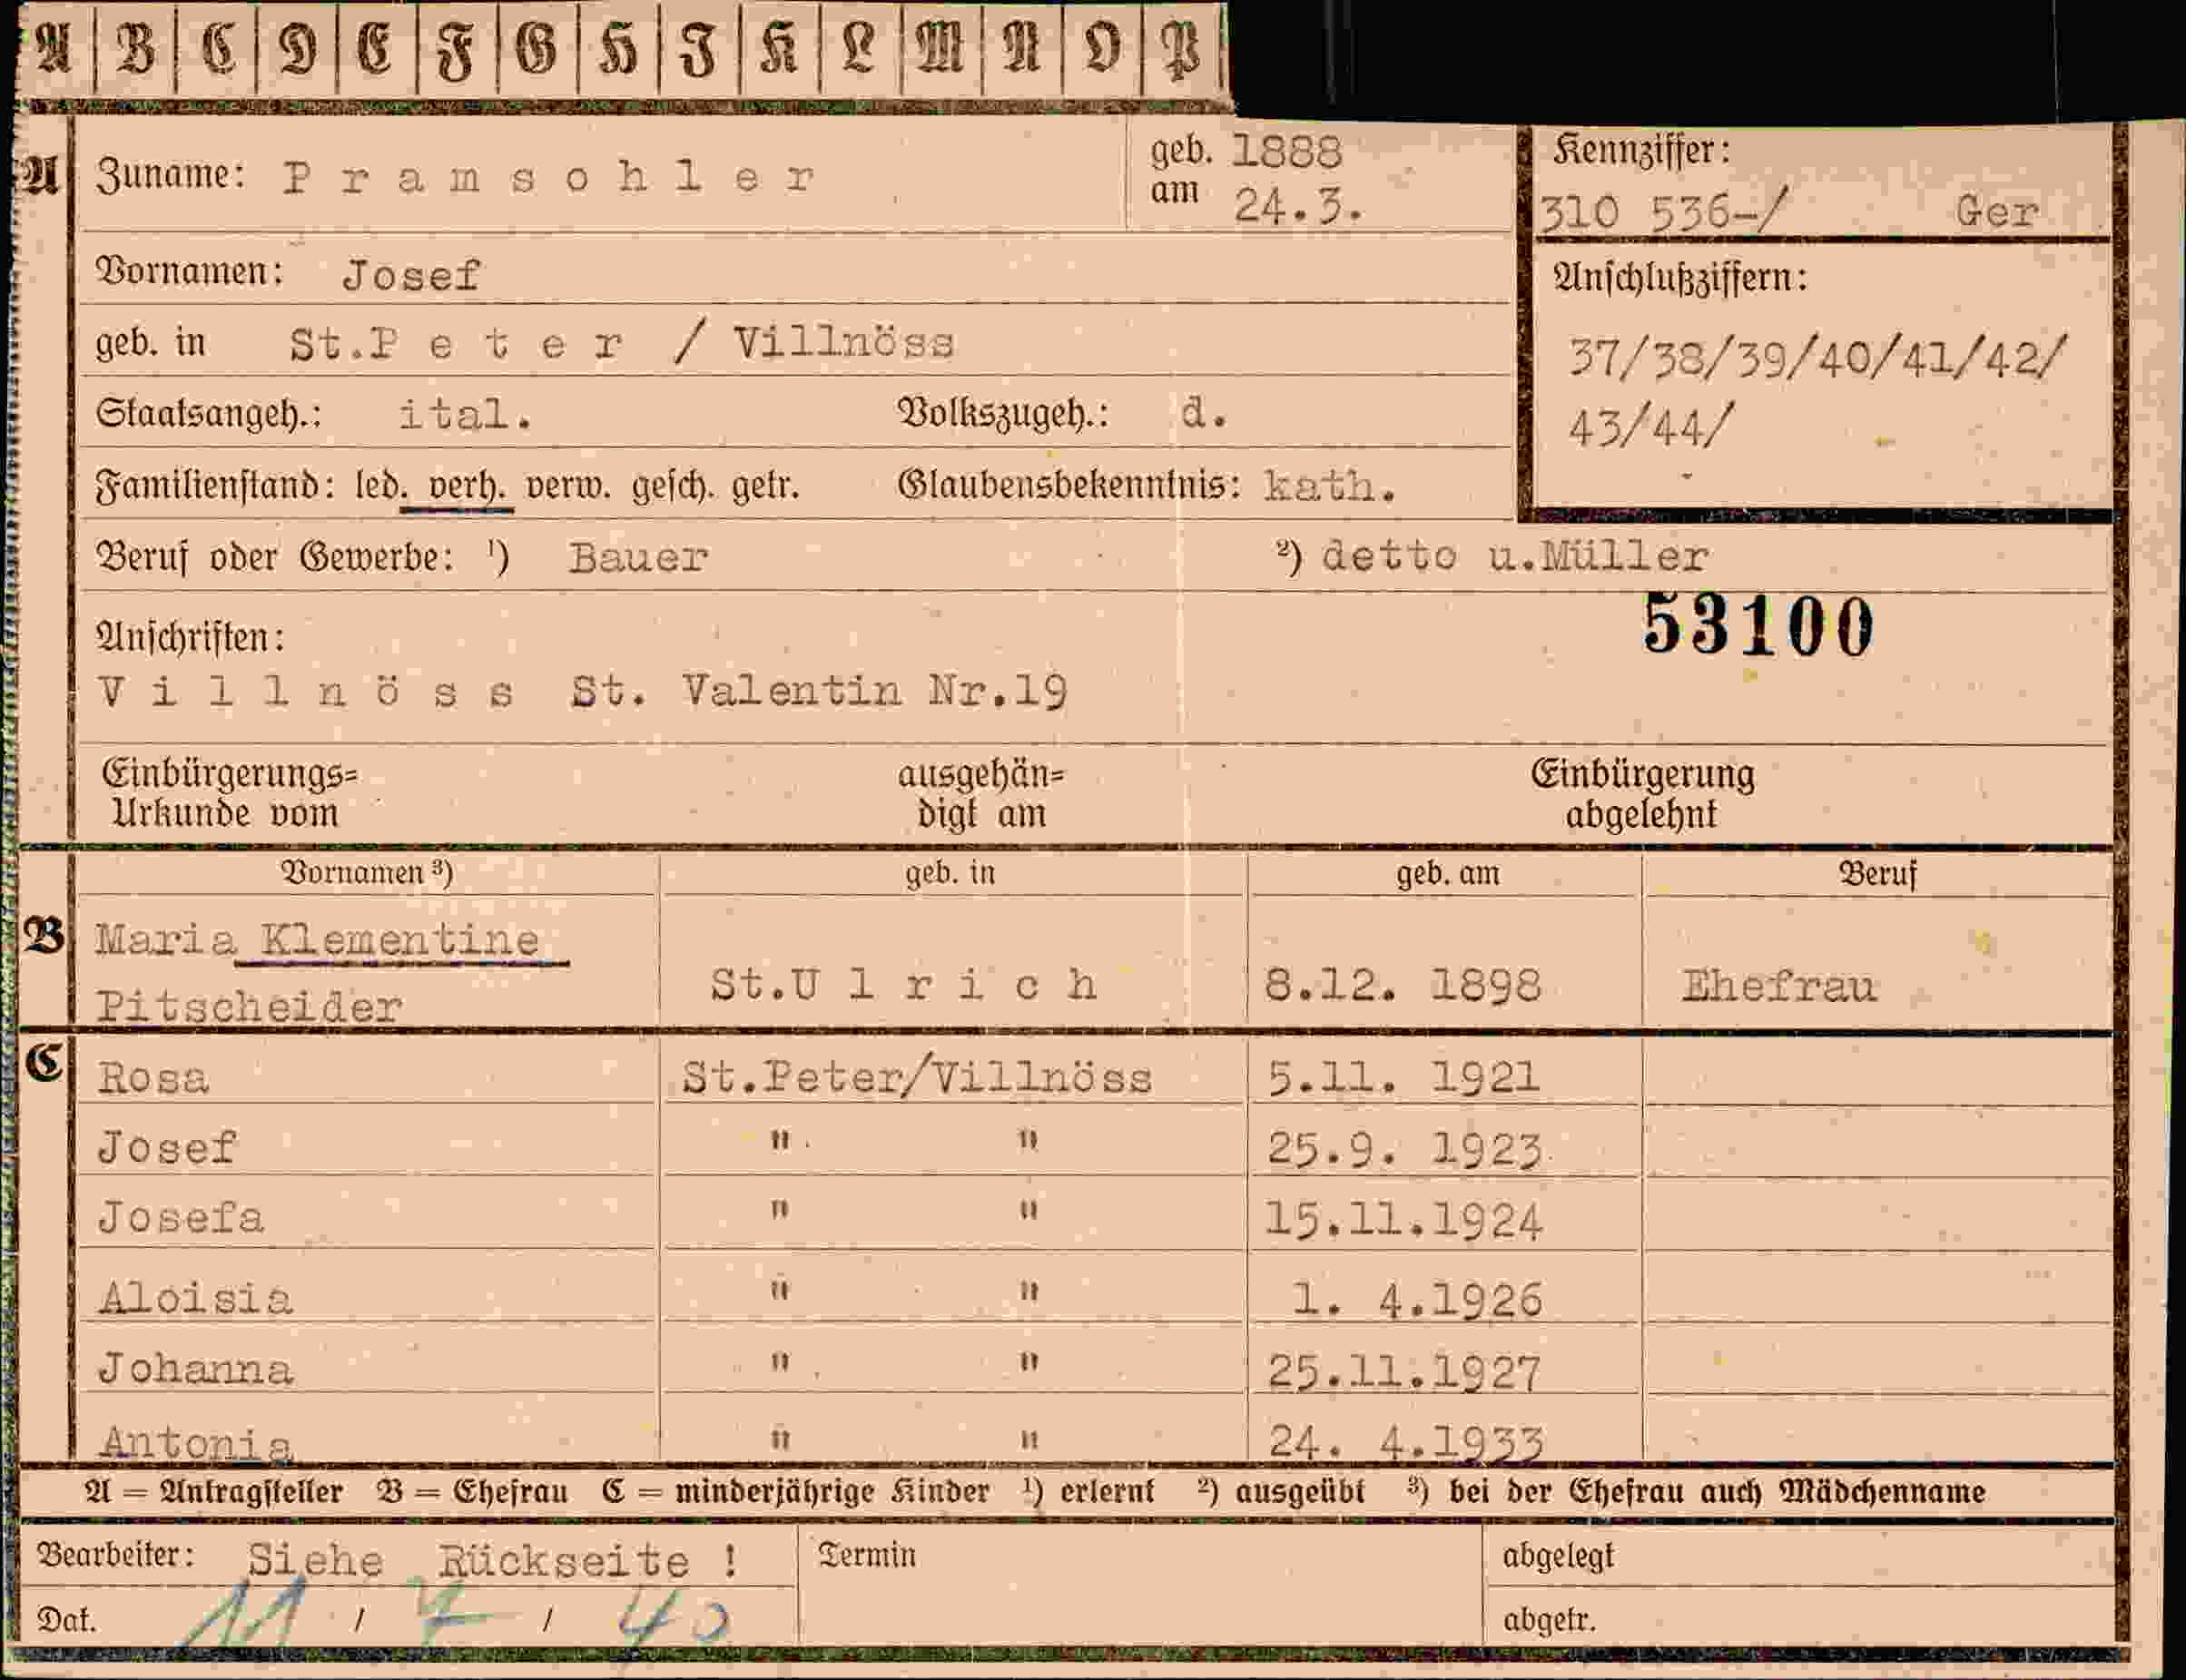 A B C D E F G H J K L M N O P
A Zuname: P r a m s o h l e r geb. am 1888 24.3. Kennziffer:
310 536-/ Ger
Vornamen: Josef Anschlußziffern:
geb. in St.P e t e r / Villnöss 37/38/39/40/41/42/
Staatsangeh.: ital. Volkszugeh.: d. 43/44/
Familienstand: led. verh. verw. gesch. getr. Glaubensbekenntnis: kath.
Beruf oder Gewerbe: ¹) Bauer ²) detto u.Müller
53100
Anschriften:
V i l l n ö s s St. Valentin Nr.19
Einbürgerungs= ausgehän= Einbürgerung
Urkunde vom digt am abgelehnt
Vornamen ³) geb. in geb. am Beruf
B Maria Klementine
Pitscheider St.U l r i c h 8.12. 1898 Ehefrau
C Rosa St.Peter/Villnöss 5.11. 1921
Josef " " 25.9. 1923
Josefa " " 15.11.1924
Aloisia " " 1. 4.1926
Johanna " " 25.11.1927
Antonia " " 24. 4.1933
A = Antragsteller B = Ehefrau C = minderjährige Kinder ¹) erlernt ²) ausgeübt ³) bei der Ehefrau auch Mädchenname
Bearbeiter: Siehe Rückseite ! Termin abgelegt
Dat. 11 / 7 / 40 abgetr.